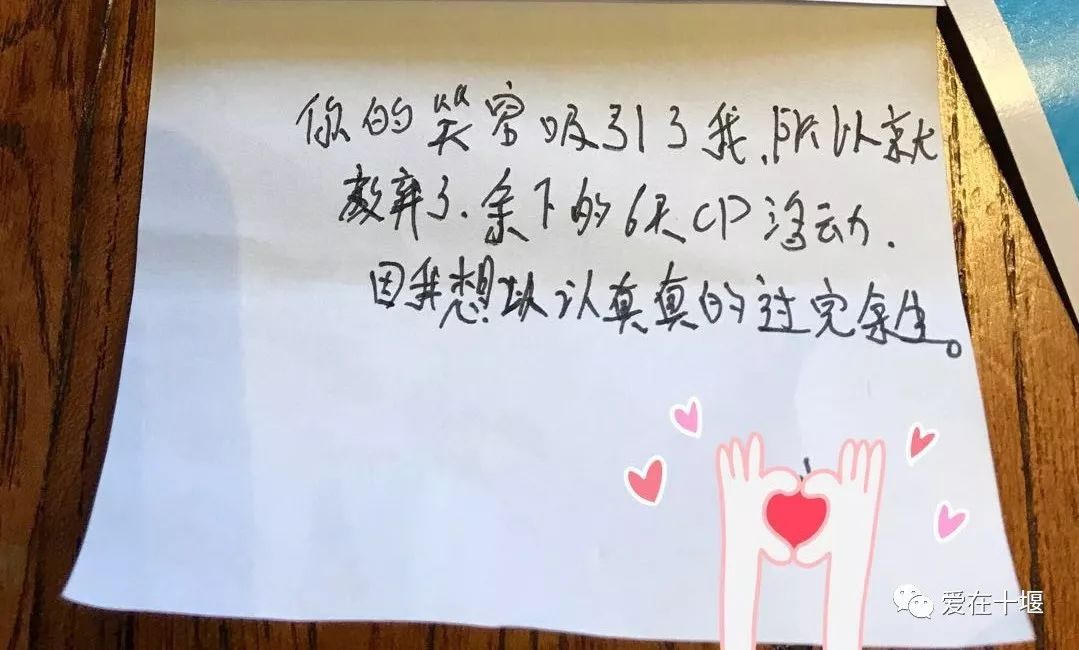 你的笑容吸引了我,所以就
放弃了.余下的6天CP活动.
因我想认认真真的过完余生。
爱在十堰